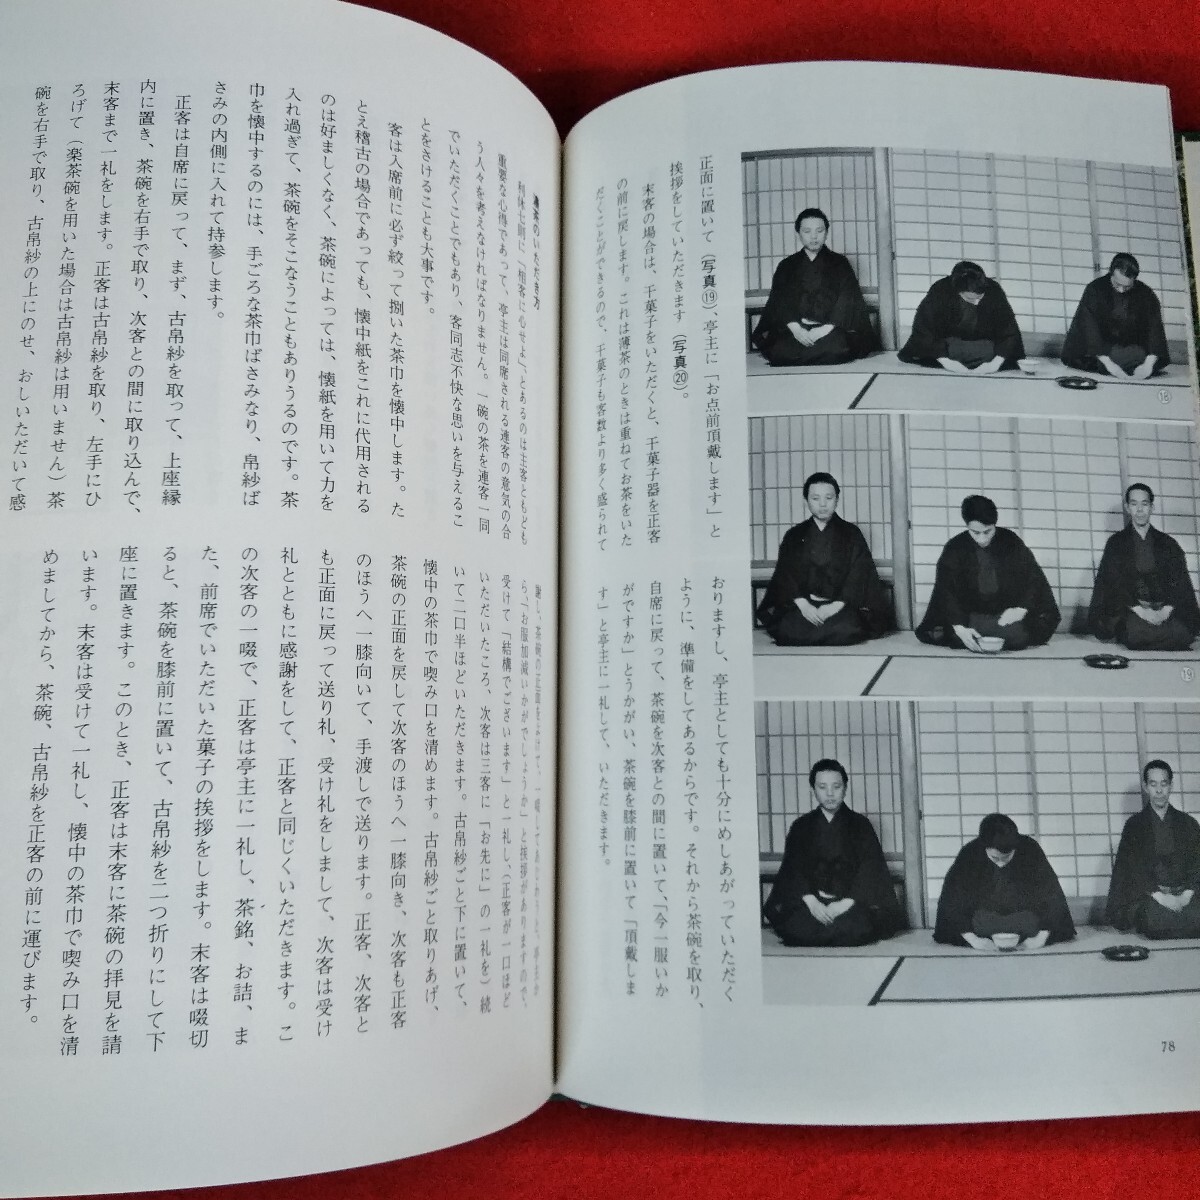 正面に置いて（写真⑲）、亭主に「お点前頂戴します」と
挨拶をしていただきます（写真⑳）。
末客の場合は、干菓子をいただくと、干菓子器を正客
の前に戻します。これは薄茶のときは重ねてお茶をいた
だくことができるので、干菓子も客数より多く盛られて
おりますし、亭主としても十分にめしあがっていただく
ように、準備をしてあるからです。それから茶碗を取り、
自席に戻って、茶碗を次客との間に置いて、「今一服いか
がですか」とうかがい、茶碗を膝前に置いて「頂戴しま
す」と亭主に一礼して、いただきます。
⑱
⑲
78
濃茶のいただき方
利休七則に「相客に心せよ」、とあるのは主客ともども
重要な心得であって、亭主は同席される連客の意気の合
う人々を考えなければなりません。一碗の茶を連客一同
でいただくことでもあり、客同志不快な思いを与えるこ
とをさけることも大事です。
客は入席前に必ず絞って捌いた茶巾を懐中します。た
とえ稽古の場合であっても、懐中紙をこれに代用される
のは好ましくなく、茶碗によっては、懐紙を用いて力を
入れ過ぎて、茶碗をそこなうこともありうるのです。茶
巾を懐中するのには、手ごろな茶巾ばさみなり、帛紗ば
さみの内側に入れて持参します。
正客は自席に戻って、まず、古帛紗を取って、上座縁
内に置き、茶碗を右手で取り、次客との間に取り込んで、
末客まで一礼をします。正客は古帛紗を取り、左手にひ
ろげて（楽茶碗を用いた場合は古帛紗は用いません）茶
碗を右手で取り、古帛紗の上にのせ、おしいただいて感
謝し、茶碗の正面をよけて、一啜
ら、「お服加減いかがでしょうか」と挨拶がありますので、
受けて「結構でございます」と一礼し、（正客が一口ほど
いただいたころ、次客は三客に「お先に」の一礼を）続
いて二口半ほどいただきます。古帛紗ごと下に置いて、
懐中の茶巾で喫み口を清めます。古帛紗ごと取りあげ、
茶碗の正面を戻して次客のほうへ一膝向き、次客も正客
のほうへ一膝向いて、手渡しで送ります。正客、次客と
も正面に戻って送り礼、受け礼をしまして、次客は受け
礼とともに感謝をして、正客と同じくいただきます。こ
の次客の一啜で、正客は亭主に一礼し、茶銘、お詰、ま
た、前席でいただいた菓子の挨拶をします。末客は啜切
ると、茶碗を膝前に置いて、古帛紗を二つ折りにして下
座に置きます。このとき、正客は末客に茶碗の拝見を請
います。末客は受けて一礼し、懐中の茶巾で喫み口を清
めましてから、茶碗、古帛紗を正客の前に運びます。